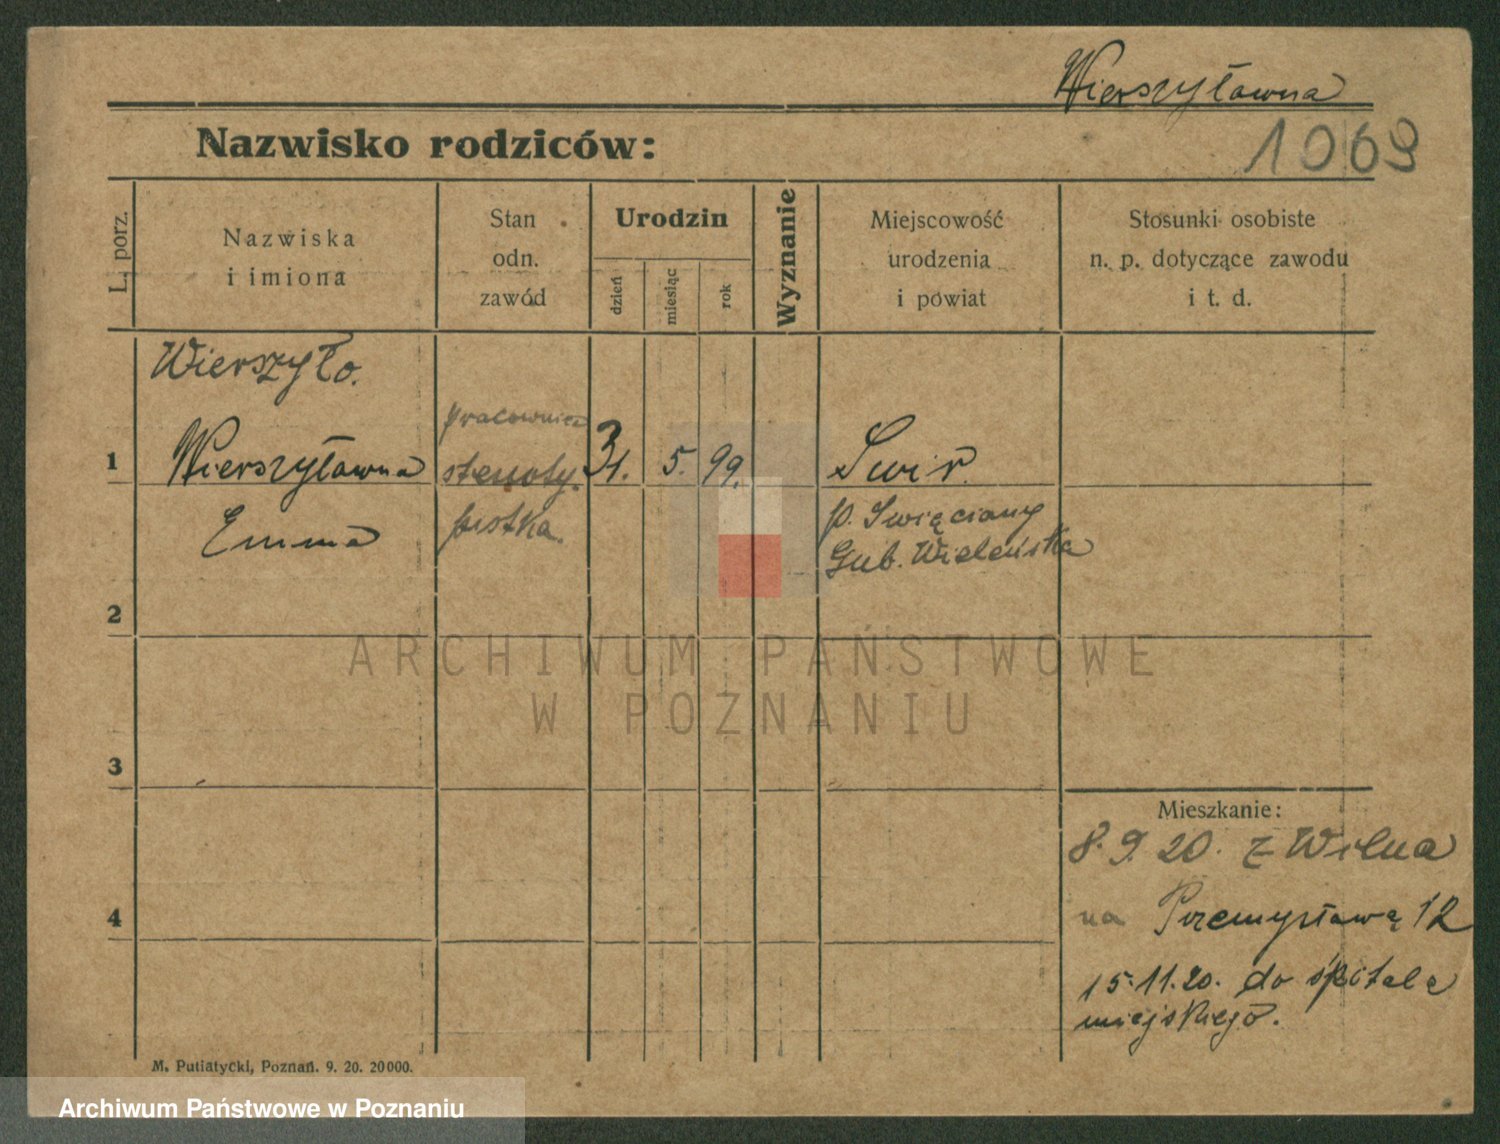 Wierszyławna
Nazwisko rodziców:
1069
L. porz.
Nazwiska
i imiona
Stan
odn.
zawód
Urodzin
dzień
miesiąc
rok
Wyznanie
Miejscowość
urodzenia
i powiat
Stosunki osobiste
n. p. dotyczące zawodu
i t. d.
Wierszyło.
1
Wierszyławna
Emma
pracownica
stenoty-
pistka.
31. 5. 99.
Swir
p. Swięciany
Gub. Wileńska
2
3
4
Mieszkanie:
8. 9. 20. z Wilna
na Przemysławą 12
15.11.20. do śpitala
miejskiego.
M. Putiatycki, Poznań. 9. 20. 20000.
ARCHIWUM PAŃSTWOWE
W POZNANIU
Archiwum Państwowe w Poznaniu